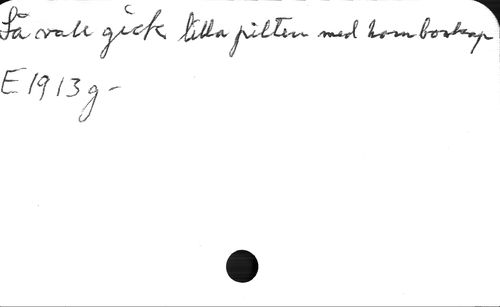 Så vall gick lilla pilten med hornboskap
E 1913 g -